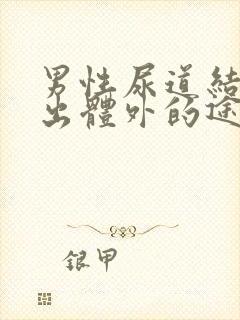 男性尿道結
出體外的途
銀甲